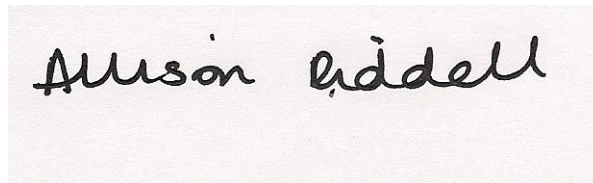 Allison Riddell